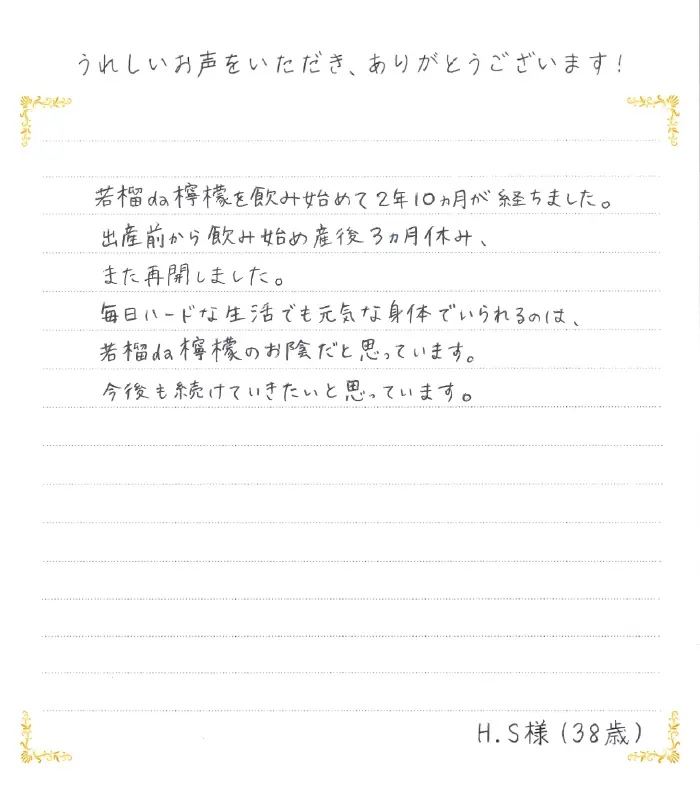 うれしいお声をいただき、ありがとうございます!
若榴da檸檬を飲み始めて2年10ヵ月が経ちました。
出産前から飲み始め産後3ヵ月休み、
また再開しました。
毎日ハードな生活でも元気な身体でいられるのは、
若榴da檸檬のお陰だと思っています。
今後も続けていきたいと思っています。
H.S様(38歳)